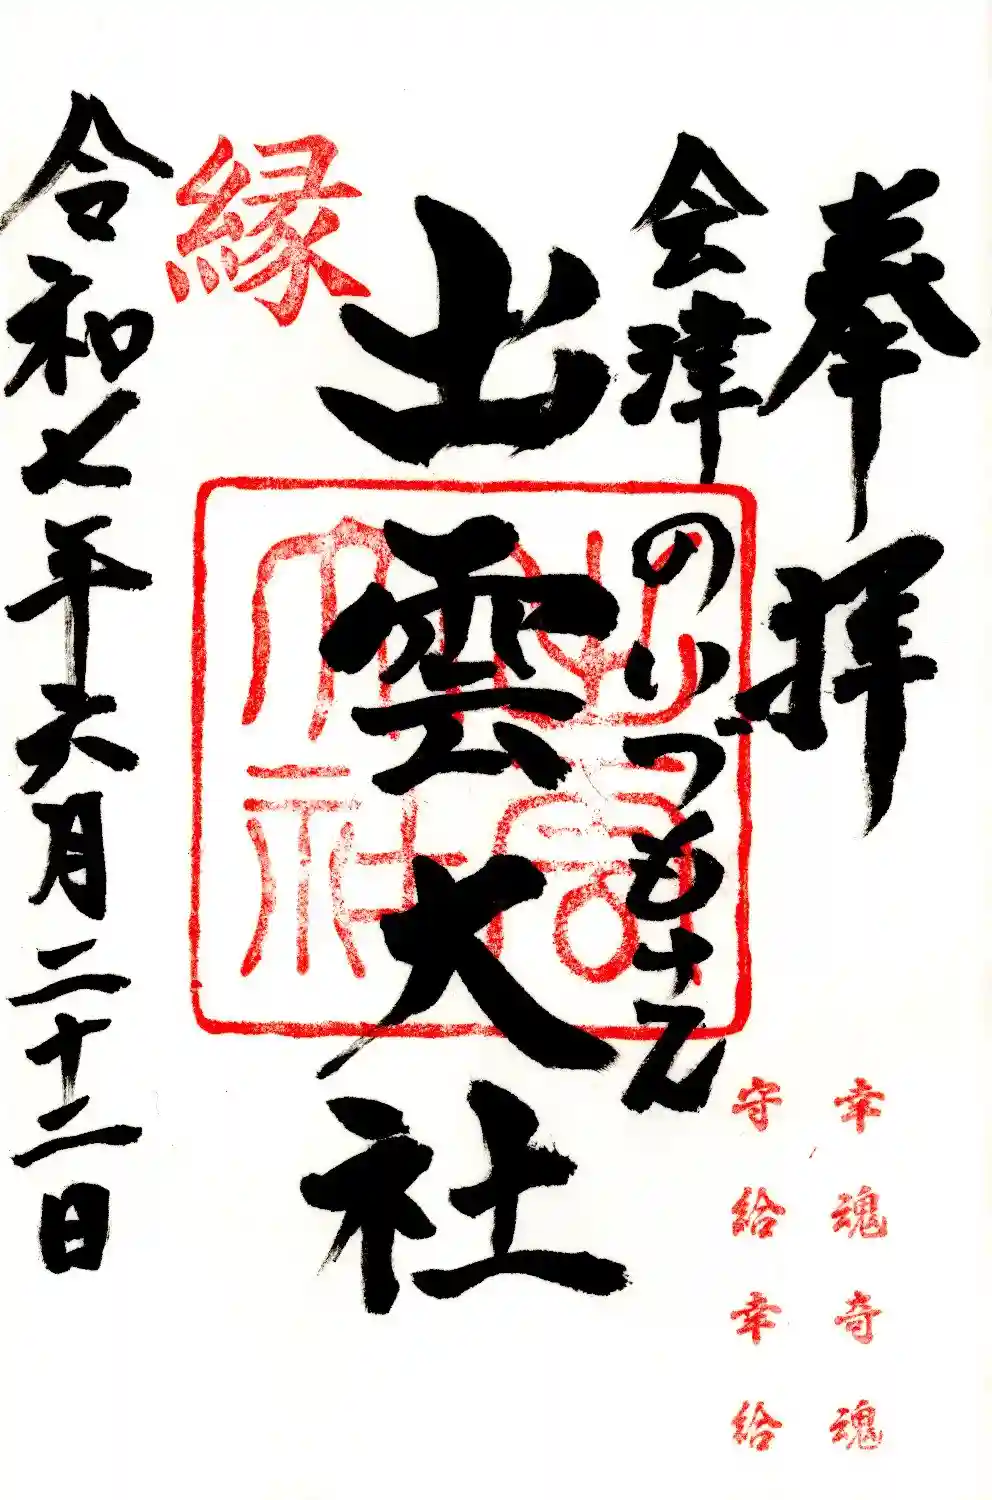 奉拝
会津のいづもさん
出雲大社
縁
出雲大社
令和七年六月二十二日
幸魂奇魂
守給幸給